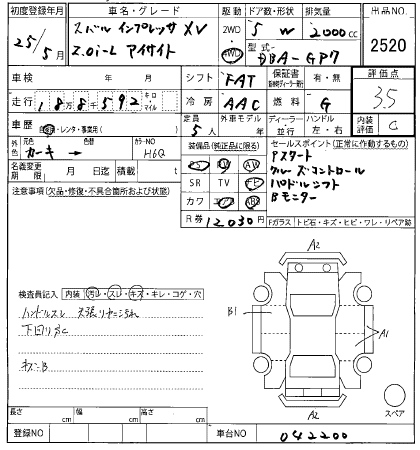 初度登録年月 車名・グレード 駆動 ドア数・形状 排気量 出品NO.
25年5月 スバル インプレッサ XV 2WD 4WD 5 W 2000cc 2520
2.0i-L アイサイト 型式 DBA-GP7
車検 年 月 シフト FAT 保証書 有・無 評価点
走行 188千592 キロ・マイル 冷房 AAC 燃料 G 3.5
車歴 自家・レンタ・事業用( ) 定員 5人 外車モデル 年 ディーラー 並行 ハンドル 左・右 内装評価 C
外色 元色 カーキ → 色替 カラーNO H6Q
装備品(純正品に限る) セールスポイント(正常に作動するもの)
名義変更期限 月 日 迄 積載 t PS PW AW Pスタート
SR TV ナビ クルーズコントロール
注意事項(欠品・修復・不具合箇所および状態) カワ エアB ABS パドルシフト
Bモニター
R券 12030円 Fガラス トビ石・キズ・ヒビ・ワレ・リペア跡
A2
検査員記入 内装 汚レ・スレ・キズ・キレ・コゲ・穴
ハンドルスレ 天張りヤニ汚れ B1
下回りサビ A1
キズB
A2 スペア
長さ cm 幅 cm 高さ cm
登録NO 車台NO 042200